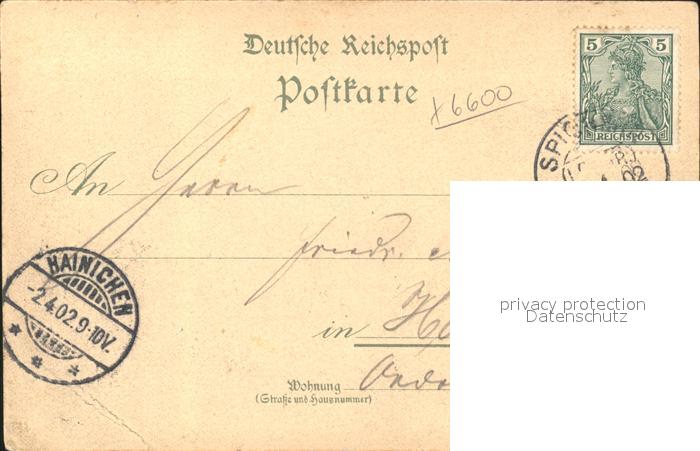 Deutsche Reichspost
Postkarte
x6600
5 5
REICHSPOST
SPI
An Herrn
Friedr.
HAINICHEN
-2.4.02.9-10V.
in
Wohnung
(Straße und Hausnummer)
privacy protection
Datenschutz